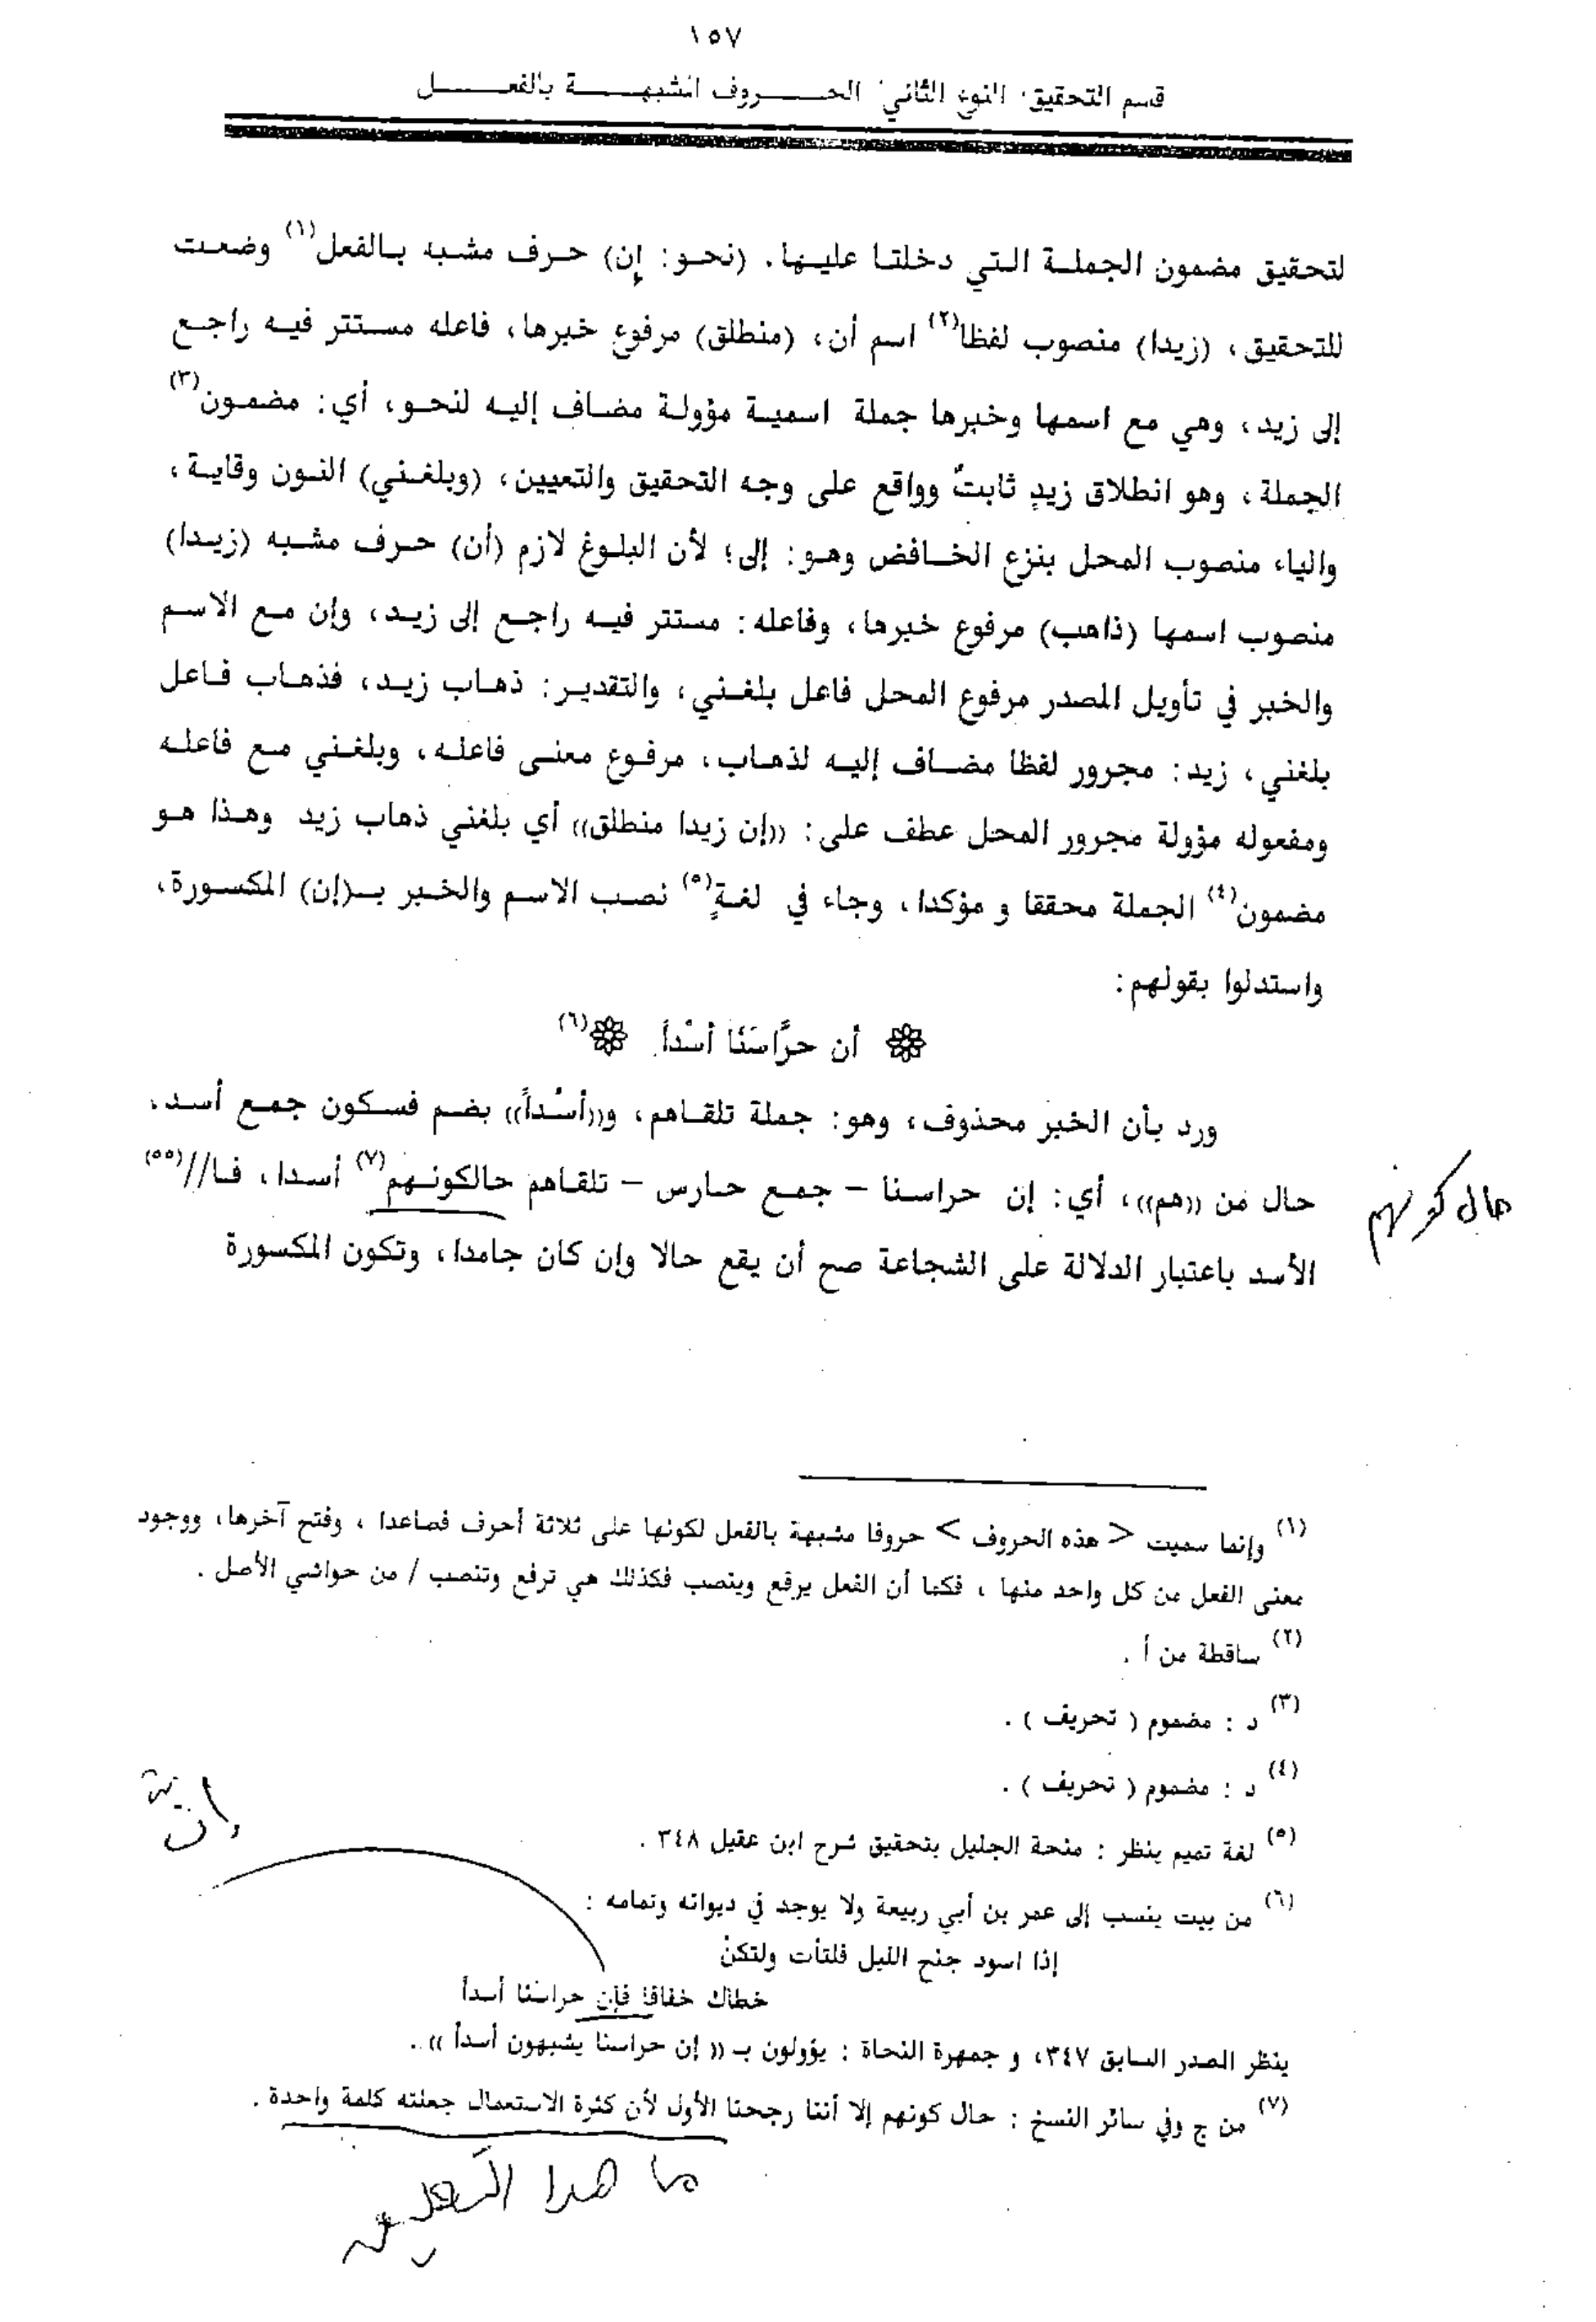 ١٥٧
قسم التحقيق: النوع الثاني: الحـــروف المشبهـــة بالفعـــل
لتحقيق مضمون الجملة التي دخلتا عليها. (نحو: إن) حرف مشبه بالفعل(١) وضعت
للتحقيق، (زيدا) منصوب لفظا(٢) اسم أن، (منطلق) مرفوع خبرها، فاعله مستتر فيه راجع
إلى زيد، وهي مع اسمها وخبرها جملة اسمية مؤولة مضاف إليه لنحو، أي: مضمون(٣)
الجملة، وهو انطلاق زيدٍ ثابتٌ وواقع على وجه التحقيق والتعيين، (وبلغني) النون وقاية،
والياء منصوب المحل بنزع الخافض وهو: إلى؛ لأن البلوغ لازم (أن) حرف مشبه (زيدا)
منصوب اسمها (ذاهب) مرفوع خبرها، وفاعله: مستتر فيه راجع إلى زيد، وإن مع الاسم
والخبر في تأويل المصدر مرفوع المحل فاعل بلغني، والتقدير: ذهاب زيد، فذهاب فاعل
بلغني، زيد: مجرور لفظا مضاف إليه لذهاب، مرفوع معنى فاعله، وبلغني مع فاعله
ومفعوله مؤولة مجرور المحل عطف على: ((إن زيدا منطلق)) أي بلغني ذهاب زيد وهذا هو
مضمون(٤) الجملة محققا و مؤكدا، وجاء في لغةٍ(٥) نصب الاسم والخبر بـ(إن) المكسورة،
واستدلوا بقولهم:
أن حرَّاسَنَا أسْداً (٦)
ورد بأن الخبر محذوف، وهو: جملة تلقاهم، و((أسْداً)) بضم فسكون جمع أسد،
حال من ((هم))، أي: إن حراسنا – جمع حارس – تلقاهم حالكونهم(٧) أسدا، فا//(٥٥)
حال كونهم
الأسد باعتبار الدلالة على الشجاعة صح أن يقع حالا وإن كان جامدا، وتكون المكسورة
(١) وإنما سميت < هذه الحروف > حروفا مشبهة بالفعل لكونها على ثلاثة أحرف فصاعدا ، وفتح آخرها، ووجود
معنى الفعل من كل واحد منها ، فكما أن الفعل يرفع وينصب فكذلك هي ترفع وتنصب / من حواشي الأصل .
(٢) ساقطة من أ .
(٣) د : مضموم ( تحريف ) .
(٤) د : مضموم ( تحريف ) .
(٥) لغة تميم ينظر : منحة الجليل بتحقيق شرح ابن عقيل ٣٤٨ .
(٦) من بيت ينسب إلى عمر بن أبي ربيعة ولا يوجد في ديوانه وتمامه :
إذا اسود جنح الليل فلتأت ولتكنْ
خطاك خفافا فإن حراسَنا أسداً
ينظر الصدر السابق ٣٤٧، و جمهرة النحاة : يؤولون بـ (( إن حراسنا يشبهون أسداً )) .
(٧) من ج وفي سائر النسخ : حال كونهم إلا أننا رجحنا الأول لأن كثرة الاستعمال جعلته كلمة واحدة .
ما هذا